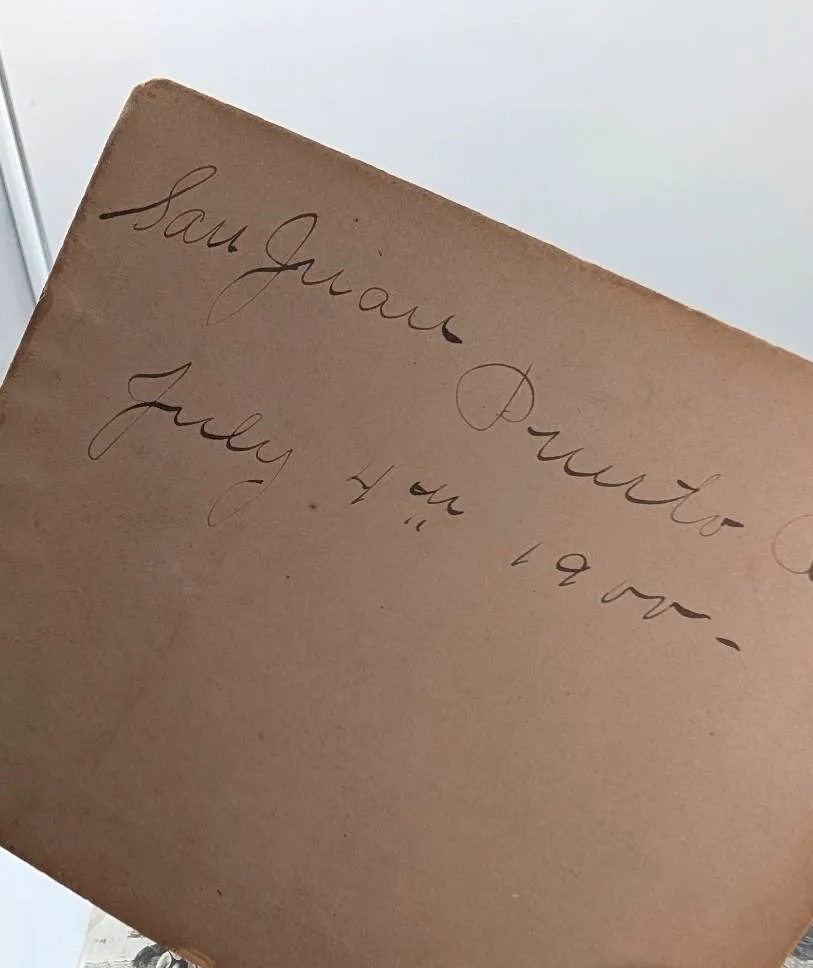 San Juan Puerto
July 4th 1900-